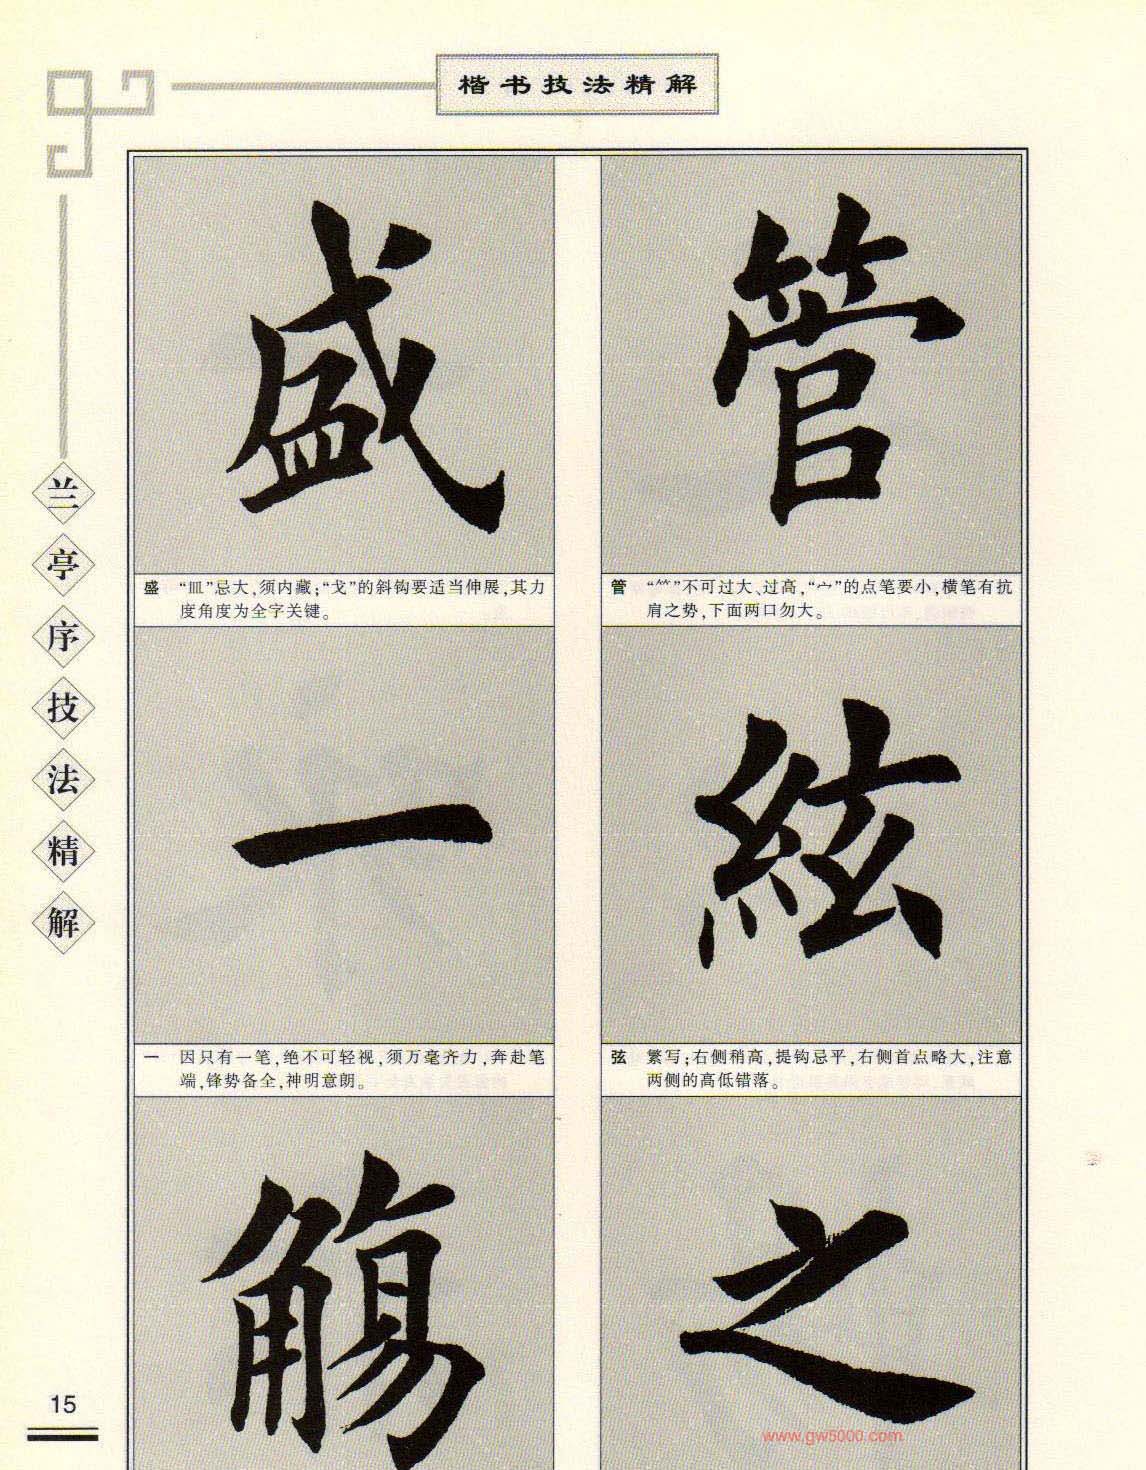 楷书技法精解
兰亭序技法精解
管
管 “⺮”不可过大、过高,“宀”的点笔要小,横笔有抗
肩之势,下面两口勿大。
絃
弦 繁写;右侧稍高,提钩忌平,右侧首点略大,注意
两侧的高低错落。
之
盛
盛 “皿”忌大、须内藏;“戈”的斜钩要适当伸展,其力
度角度为全字关键。
一
一 因只有一笔,绝不可轻视,须万毫齐力,奔赴笔
端,锋势备全,神明意朗。
觴
15
www.gw5000.com